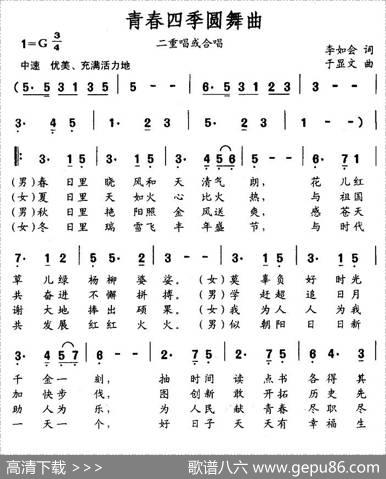 青春四季圆舞曲
二重唱或合唱
1=G 3/4
李如会 词
于显文 曲
中速 优美、充满活力地
(5· 53 135 | 5 - - | 6· 53 123 | 5 - - |
3· 45 | 1 - - | 2· 51 23 | 1 - -) |
‖: 3· 15 | 3· 15 | 3· 456 | 6· 71 |
(男)春 日里 晓 风和 天 清气 朗, 花 儿红
(女)夏 日里 天 如火 心 比火 热, 与 祖国
(男)秋 日里 艳 阳照 金 风送 爽, 感 苍天
(女)冬 日里 瑞 雪飞 丰 年盛 节, 与 时代
7· 12 | 5· 45 | 3 1 - | 3· 15 | 3· 15 |
草 儿绿 杨 柳婆 娑。 (女)莫 辜负 好 时光
共 奋进 不 懈拼 搏。 (男)学 赶超 追 日月
谢 大地 捧 出硕 果。 (女)我 为人 人 为我
共 发展 红 红火 火。 (男)似 朝阳 日 日新
3· 457 | 2 - - | 1· 75 | 2· 75 | 6 4· 4 |
千 金一 刻, 抽 时间 读 点书 各得 其
加 快步 伐, 图 创新 敢 开拓 历史 先
助 人为 乐, 为 人民 献 青春 尽职 尽
一 天一 个, 好 日子 天 天有 幸福 生
高清下载 >>>
歌谱八六 www.gepu86.com